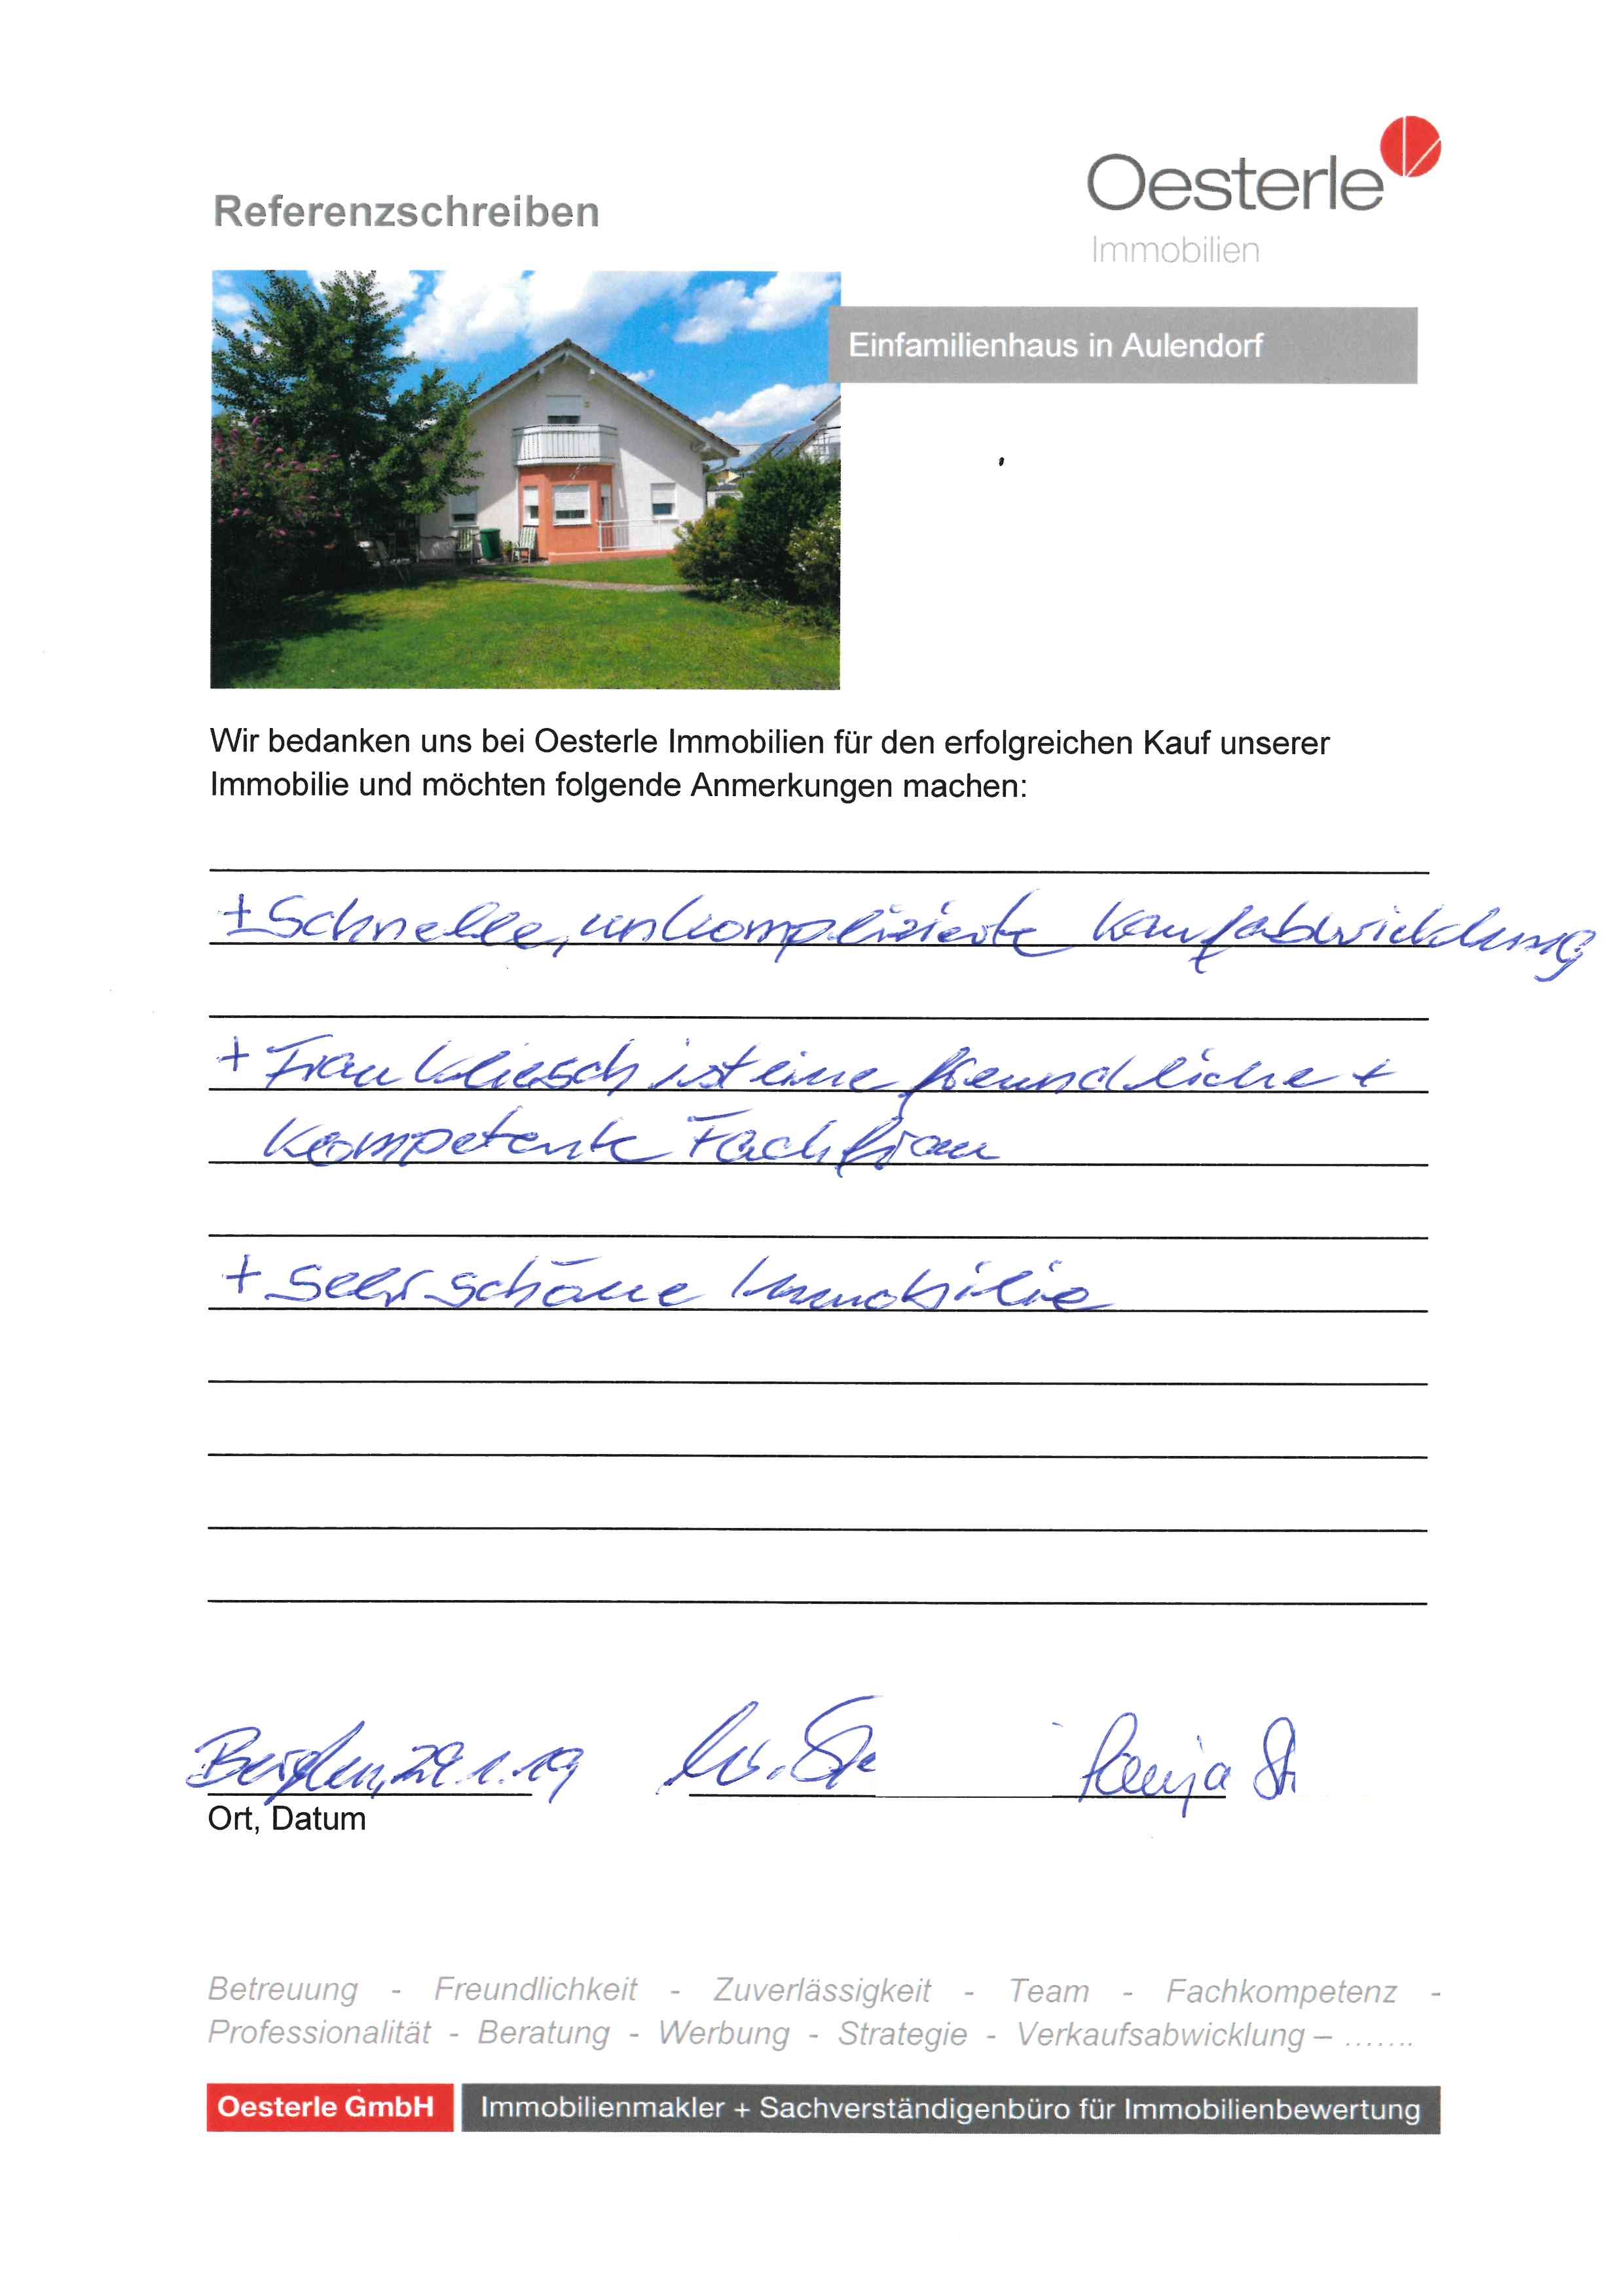 Oesterle
Referenzschreiben
Immobilien
Einfamilienhaus in Aulendorf
Wir bedanken uns bei Oesterle Immobilien für den erfolgreichen Kauf unserer
Immobilie und möchten folgende Anmerkungen machen:
+ Schnelle, unkomplizierte Kaufabwicklung
+ Frau Kliesch ist eine freundliche +
kompetente Fachfrau
+ Sehr schöne Immobilie
29.1.19
Ort, Datum
Betreuung - Freundlichkeit - Zuverlässigkeit - Team - Fachkompetenz -
Professionalität - Beratung - Werbung - Strategie - Verkaufsabwicklung – .......
Oesterle GmbH Immobilienmakler + Sachverständigenbüro für Immobilienbewertung